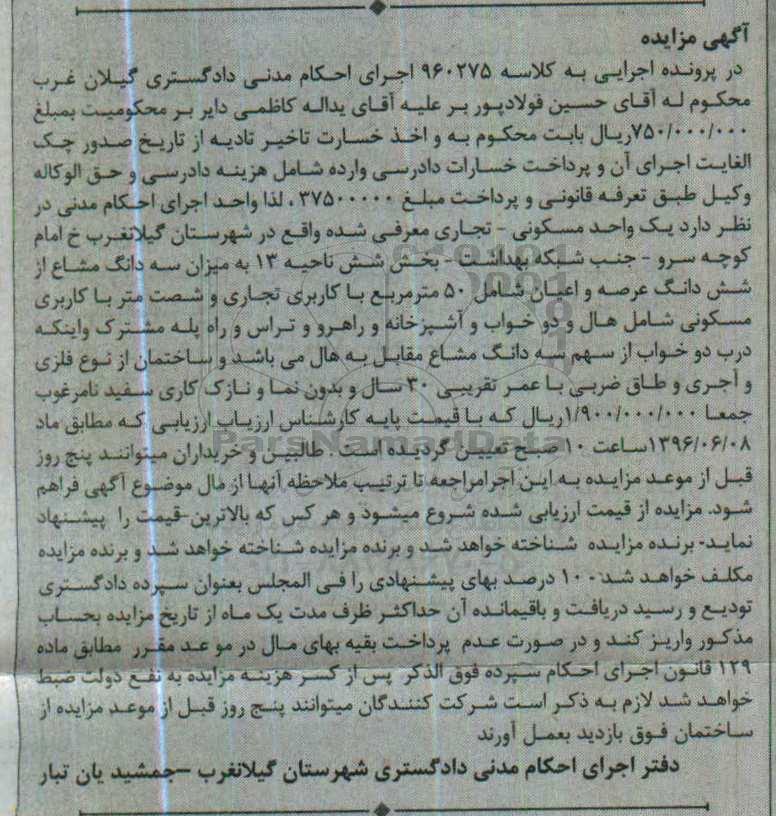 آگهی مزایده
در پرونده اجرایی به کلاسه ۹۶۰۲۷۵ اجرای احکام مدنی دادگستری گیلان غرب
محکوم له آقای حسین فولادپور بر علیه آقای یداله کاظمی دایر بر محکومیت بمبلغ
۷۵۰/۰۰۰/۰۰۰ریال بابت محکوم به و اخذ خسارت تاخیر تادیه از تاریخ صدور چک
الغایت اجرای آن و پرداخت خسارات دادرسی وارده شامل هزینه دادرسی و حق الوکاله
وکیل طبق تعرفه قانونی و پرداخت مبلغ ۳۷۵۰۰۰۰۰ ، لذا واحد اجرای احکام مدنی در
نظر دارد یک واحد مسکونی - تجاری معرفی شده واقع در شهرستان گیلانغرب خ امام
کوچه سرو - جنب شبکه بهداشت - بخش شش ناحیه ۱۳ به میزان سه دانگ مشاع از
شش دانگ عرصه و اعیان شامل ۵۰ مترمربع با کاربری تجاری و شصت متر با کاربری
مسکونی شامل هال و دو خواب و آشپزخانه و راهرو و تراس و راه پله مشترک واینکه
درب دو خواب از سهم سه دانگ مشاع مقابل به هال می باشد و ساختمان از نوع فلزی
و آجری و طاق ضربی با عمر تقریبی ۳۰ سال و بدون نما و نازک کاری سفید نامرغوب
جمعا ۱/۹۰۰/۰۰۰/۰۰۰ریال که با قیمت پایه کارشناس ارزیاب ارزیابی که مطابق ماد
۱۳۹۶/۰۶/۰۸ساعت ۱۰ صبح تعیین گردیده است . طالبین و خریداران میتوانند پنج روز
قبل از موعد مزایده به این اجرامراجعه تا ترتیب ملاحظه آنها از مال موضوع آگهی فراهم
شود. مزایده از قیمت ارزیابی شده شروع میشود و هر کس که بالاترین قیمت را پیشنهاد
نماید- برنده مزایده شناخته خواهد شد و برنده مزایده شناخته خواهد شد و برنده مزایده
مکلف خواهد شد - ۱۰ درصد بهای پیشنهادی را فی المجلس بعنوان سپرده دادگستری
تودیع و رسید دریافت و باقیمانده آن حداکثر ظرف مدت یک ماه از تاریخ مزایده بحساب
مذکور واریز کند و در صورت عدم پرداخت بقیه بهای مال در مو عد مقرر مطابق ماده
۱۲۹ قانون اجرای احکام سپرده فوق الذکر پس از کسر هزینه مزایده به نفع دولت ضبط
خواهد شد لازم به ذکر است شرکت کنندگان میتوانند پنج روز قبل از موعد مزایده از
ساختمان فوق بازدید بعمل آورند
دفتر اجرای احکام مدنی دادگستری شهرستان گیلانغرب -جمشید یان تبار
ParsNamadData